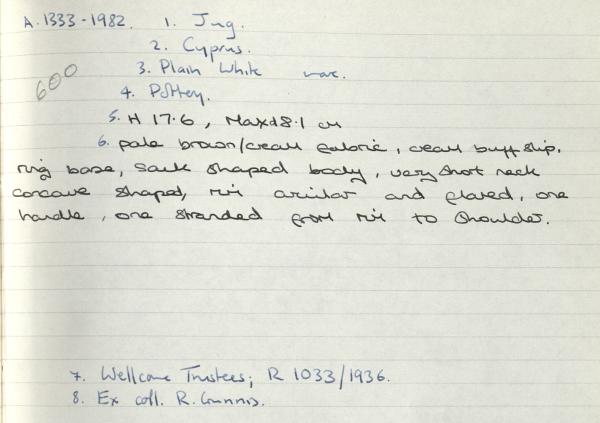 A.1333-1982. 1. Jug.
2. Cyprus.
600
3. Plain White ware.
4. Pottery.
5. H 17.6, Maxd 8.1 cm
6. pale brown/cream fabric, cream buff slip.
ring base, sack shaped body, very short neck
concave shaped, rim circular and flared, one
handle, one stranded from rim to shoulder.
7. Wellcome Trustees; R 1033/1936.
8. Ex coll. R. Gunnis.